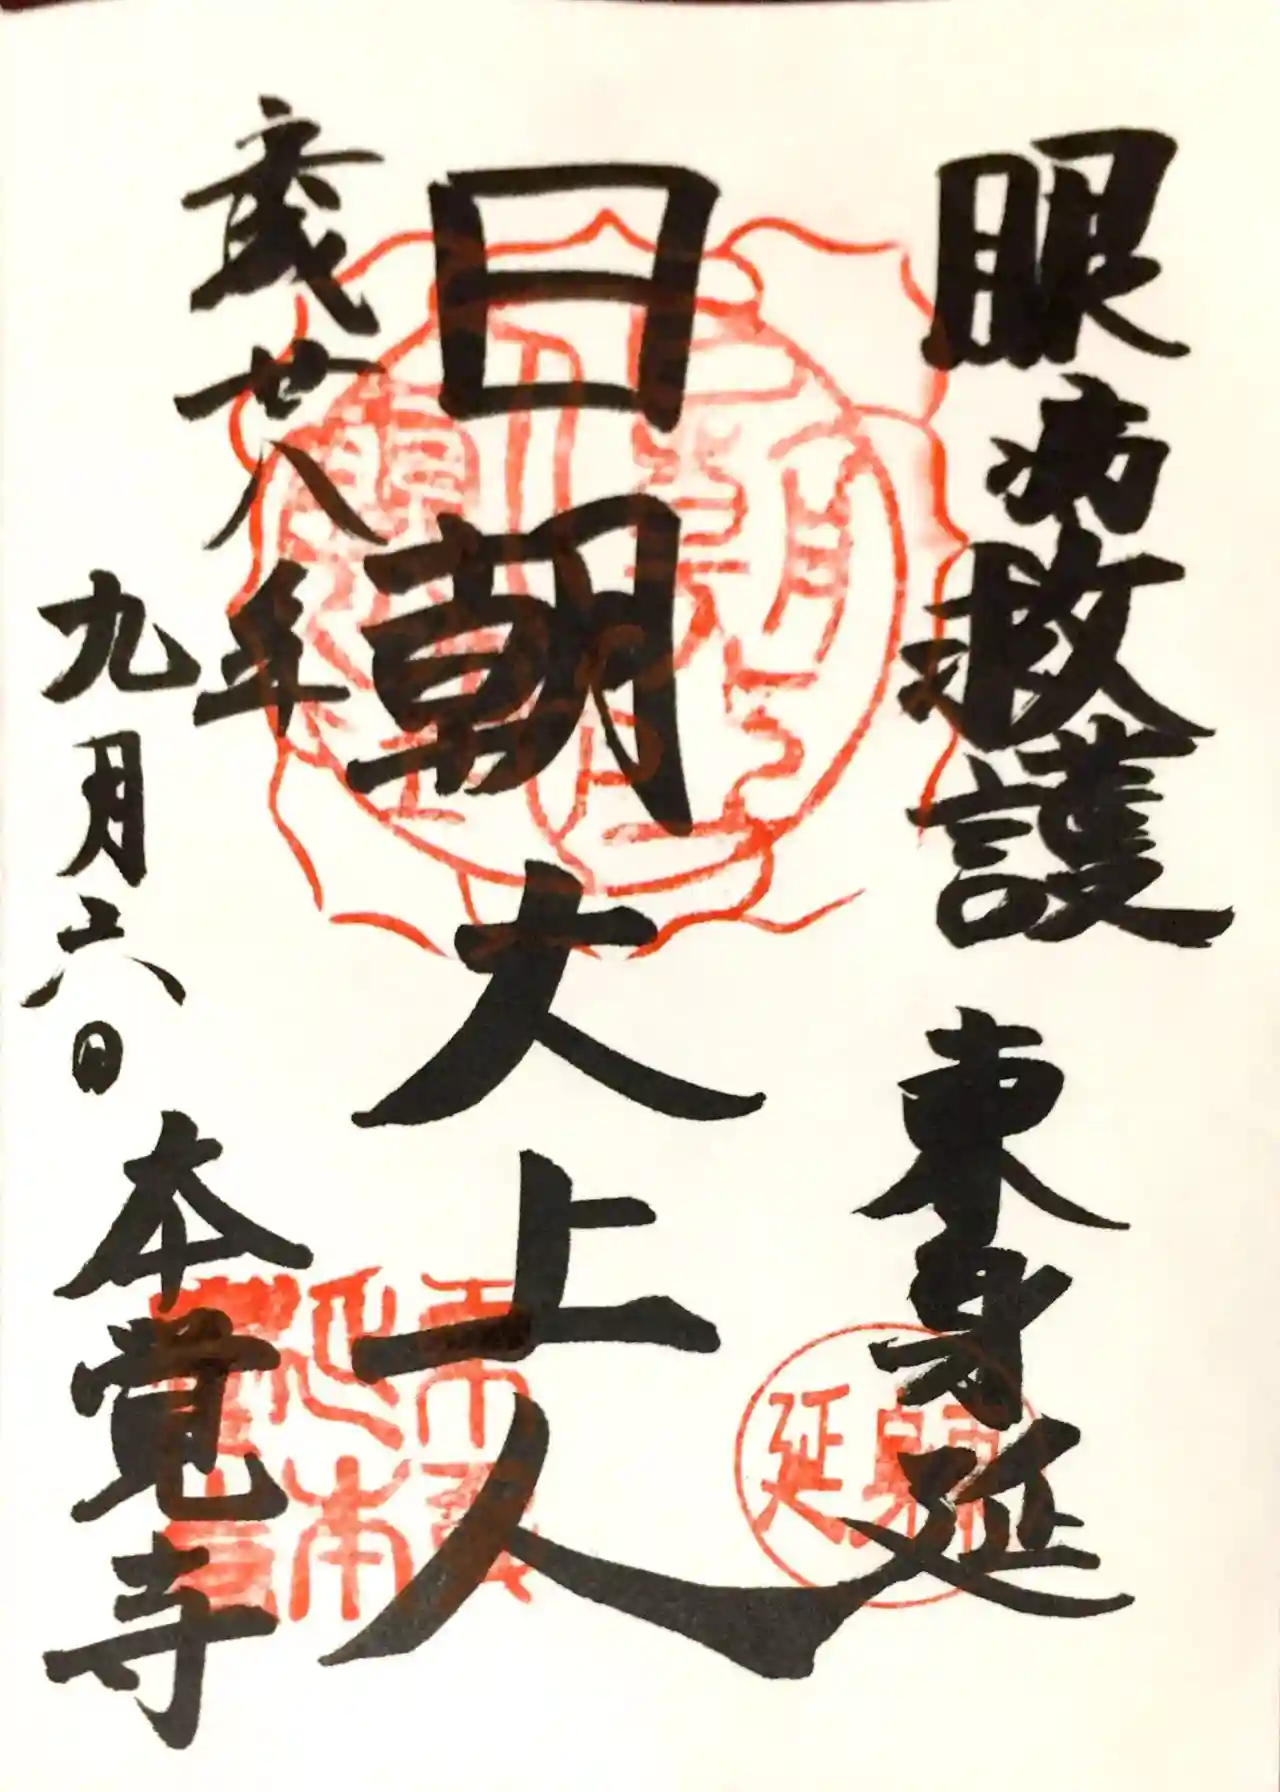 眼病救護 東身延
日朝大上人
歳廿八年
九月六日 本覚寺
東身延